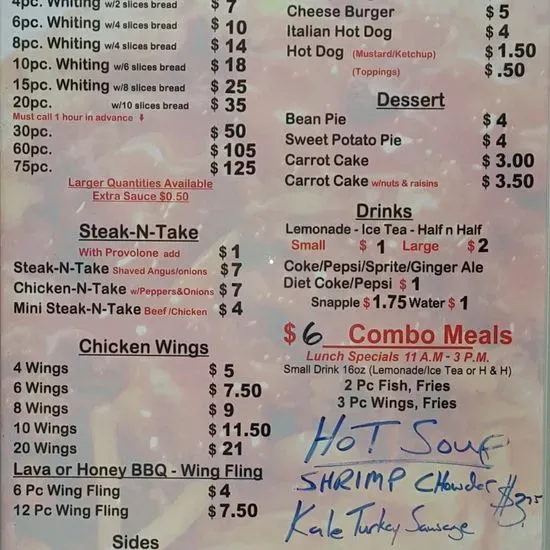 4pc. Whiting w/2 slices bread $ 7
6pc. Whiting w/4 slices bread $ 10
8pc. Whiting w/4 slices bread $ 14
10pc. Whiting w/6 slices bread $ 18
15pc. Whiting w/8 slices bread $ 25
20pc. w/10 slices bread $ 35
Must call 1 hour in advance
30pc. $ 50
60pc. $ 105
75pc. $ 125
Larger Quantities Available
Extra Sauce $0.50
Steak-N-Take
With Provolone add $ 1
Steak-N-Take Shaved Angus/onions $ 7
Chicken-N-Take w/Peppers&Onions $ 7
Mini Steak-N-Take Beef /Chicken $ 4
Chicken Wings
4 Wings $ 5
6 Wings $ 7.50
8 Wings $ 9
10 Wings $ 11.50
20 Wings $ 21
Lava or Honey BBQ - Wing Fling
6 Pc Wing Fling $ 4
12 Pc Wing Fling $ 7.50
Sides
Cheese Burger $ 5
Italian Hot Dog $ 4
Hot Dog (Mustard/Ketchup) $ 1.50
(Toppings) $ .50
Dessert
Bean Pie $ 4
Sweet Potato Pie $ 4
Carrot Cake $ 3.00
Carrot Cake w/nuts & raisins $ 3.50
Drinks
Lemonade - Ice Tea - Half n Half
Small $ 1 Large $ 2
Coke/Pepsi/Sprite/Ginger Ale
Diet Coke/Pepsi $ 1
Snapple $ 1.75 Water $ 1
$ 6 Combo Meals
Lunch Specials 11 A.M - 3 P.M.
Small Drink 16oz (Lemonade/Ice Tea or H & H)
2 Pc Fish, Fries
3 Pc Wings, Fries
HOT SOUP
SHRIMP CHowder $3.75
Kale Turkey Sausage